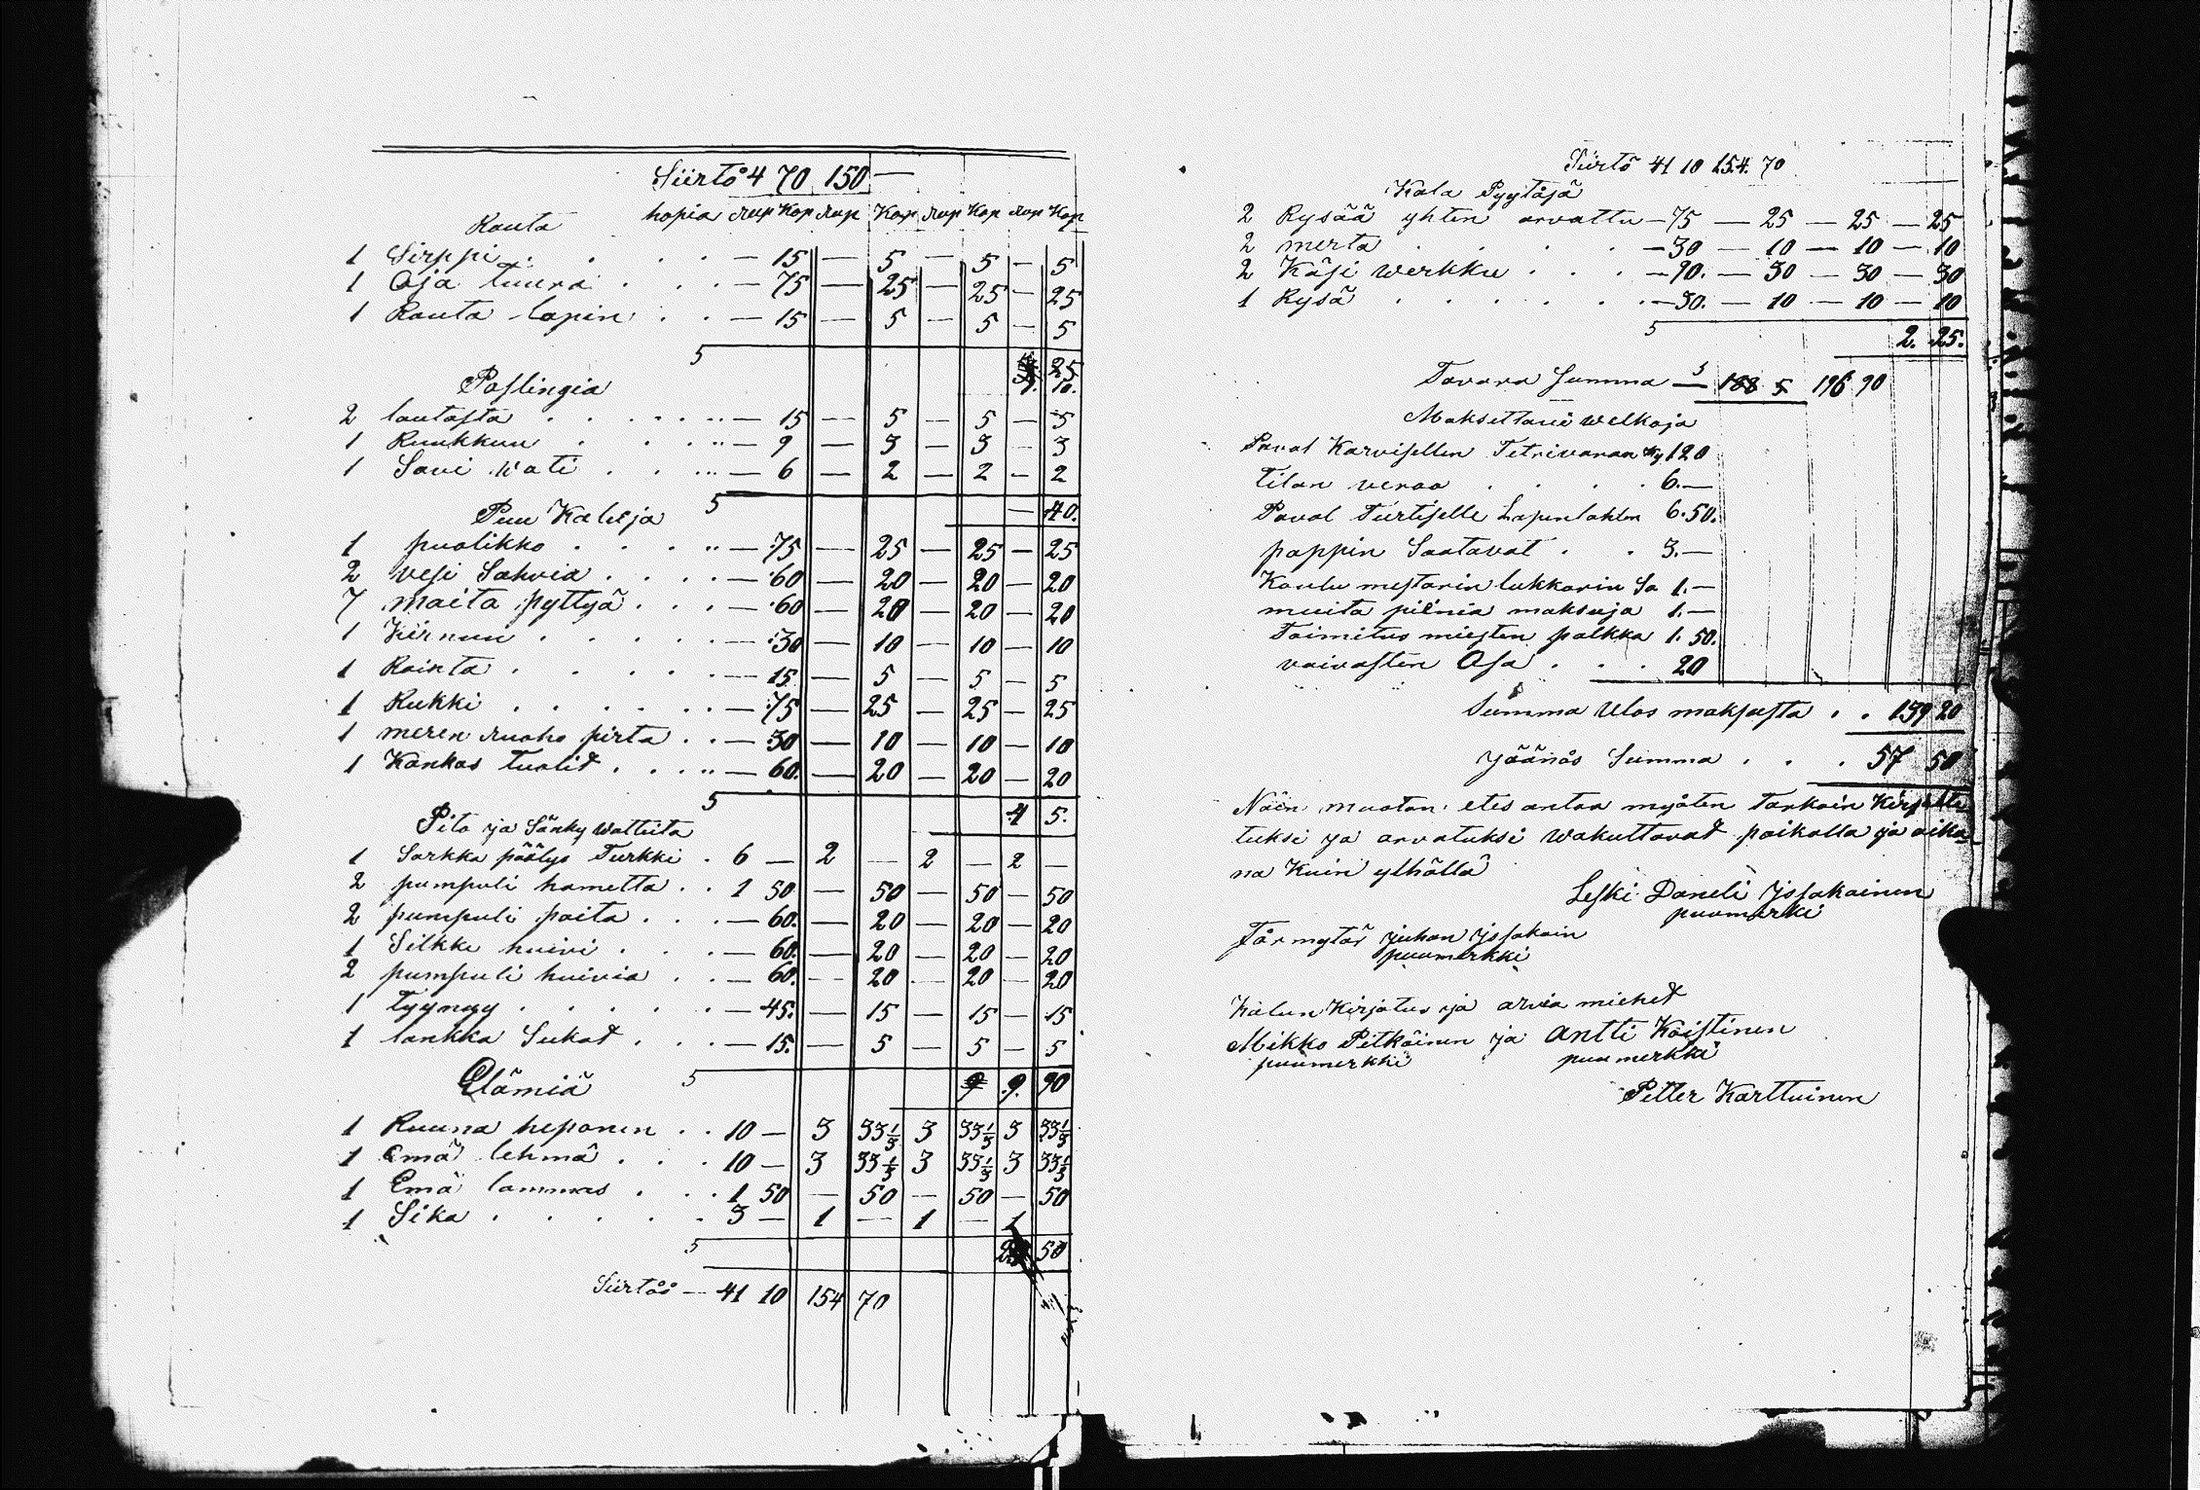 Siirtö 4 70 150 —
hopia rup Kop rup Kop rup Kop rup Kop
Rauta
1 Sirppi . . . . — 15 — 5 — 5 — 5
1 Oja tuura . . . — 75 — 25 — 25 — 25
1 Rauta lapin . . — 15 — 5 — 5 — 5
5 25
10.
Poslingia
2 lautasta . . . . . — 15 — 5 — 5 — 5
1 Ruukkuu . . . — 9 — 3 — 3 — 3
1 Savi Wati . . . — 6 — 2 — 2 — 2
5 — 40.
Puu Kaluja
1 puolikko . . . . — 75 — 25 — 25 — 25
2 vesi Sahvia . . . . — 60 — 20 — 20 — 20
7 maito pyttyä . . . — 60 — 20 — 20 — 20
1 Kirnuu . . . . . — 30 — 10 — 10 — 10
1 Rainta . . . . . — 15 — 5 — 5 — 5
1 Rukki . . . . . . — 75 — 25 — 25 — 25
1 meren ruoho pirta . . — 30 — 10 — 10 — 10
1 Kankas tuolit . . . . — 60. — 20 — 20 — 20
5 4 5.
Pito ja Sänky Watteita
1 Sarkka päälys Turkki . 6 — 2 — 2 — 2 —
2 pumpuli hametta . . 1 50 — 50 — 50 — 50
2 pumpuli paita . . . — 60. — 20 — 20 — 20
1 Silkki huivi . . . — 60. — 20 — 20 — 20
2 pumpuli huivia . . — 60. — 20 — 20 — 20
1 Tyynyy . . . . . — 45. — 15 — 15 — 15
1 lankka Sukat . . . — 15. — 5 — 5 — 5
5 9 9. 90
Elämiä
1 Ruuna heponen . . 10 — 3 33 1/3 3 33 1/3 3 33 1/3
1 Emä lehmä . . . 10 — 3 33 1/3 3 33 1/3 3 33 1/3
1 Emä lammas . . . 1 50 — 50 — 50 — 50
1 Sika . . . . . . 3 — 1 — 1 — 1
5 50
Siirtöö — 41 10 154 70
Siirtö 41 10 154. 70
Kala Pyytäjä
2 Rysää yhten arvattu — 75 — 25 — 25 — 25
2 merta . . . . — 30 — 10 — 10 — 10
2 Käsi werkku . . . — 90. — 30 — 30 — 30
1 Rysä . . . . . . — 30. — 10 — 10 — 10
5 2. 25.
Tavara Summa 5 — 188 5 196 90
Maksettavia welkoja
Paval Karvisellen Tetrivaaran 120
Tilan veroo . . . . 6. —
Paval Tiirtiselle Lapinlahten 6. 50.
pappin Saatavat . . 3. —
Koulu mestarin lukkarin Sa 1. —
muita pieniä maksuja 1. —
Toimitus miesten palkka 1. 50.
vaivasten Osa . . . 20
Summa Ulos maksusta . . 139 20
Jäänös Summa . . . 57 50
Näin muoton etes antaa myöten Tarkoin Kirjoite
tuksi ja arvatuksi wakuttavat paikalla ja aika=
na Kuin ylhällä
Leski Daneli Issakainen
puumerki
Färmytär Juhan Issakain
puumerkki
Kalun Kirjotus ja arvia miehet
Mikko Pitkäinen ja Antti Koistinen
puumerkki puumerkki
Petter Karttuinen